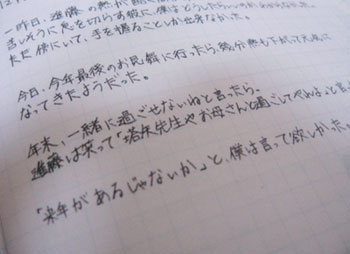 一昨日、進藤の熱が
苦しそうに息を切らす彼に、僕はどうしたらいいか
ただ傍にいて、手を握ることしか出来なかった。
今日、今年最後のお見舞に行ったら、随分熱も下がって元気に
なってきたようだった。
年末、一緒に過ごせないねと言ったら、
進藤は笑って「塔矢先生やお母さんと過ごしてやれよ」と言
「来年があるじゃないか」と、僕は言って欲しかった